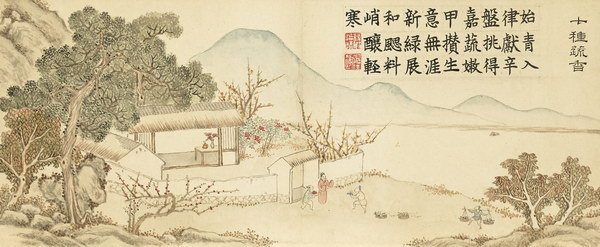 七種蔬香
始青入
律獻辛
盤挑得
嘉蔬嫩
甲攢生
意無涯
新綠展
和颸料
峭釀輕
寒